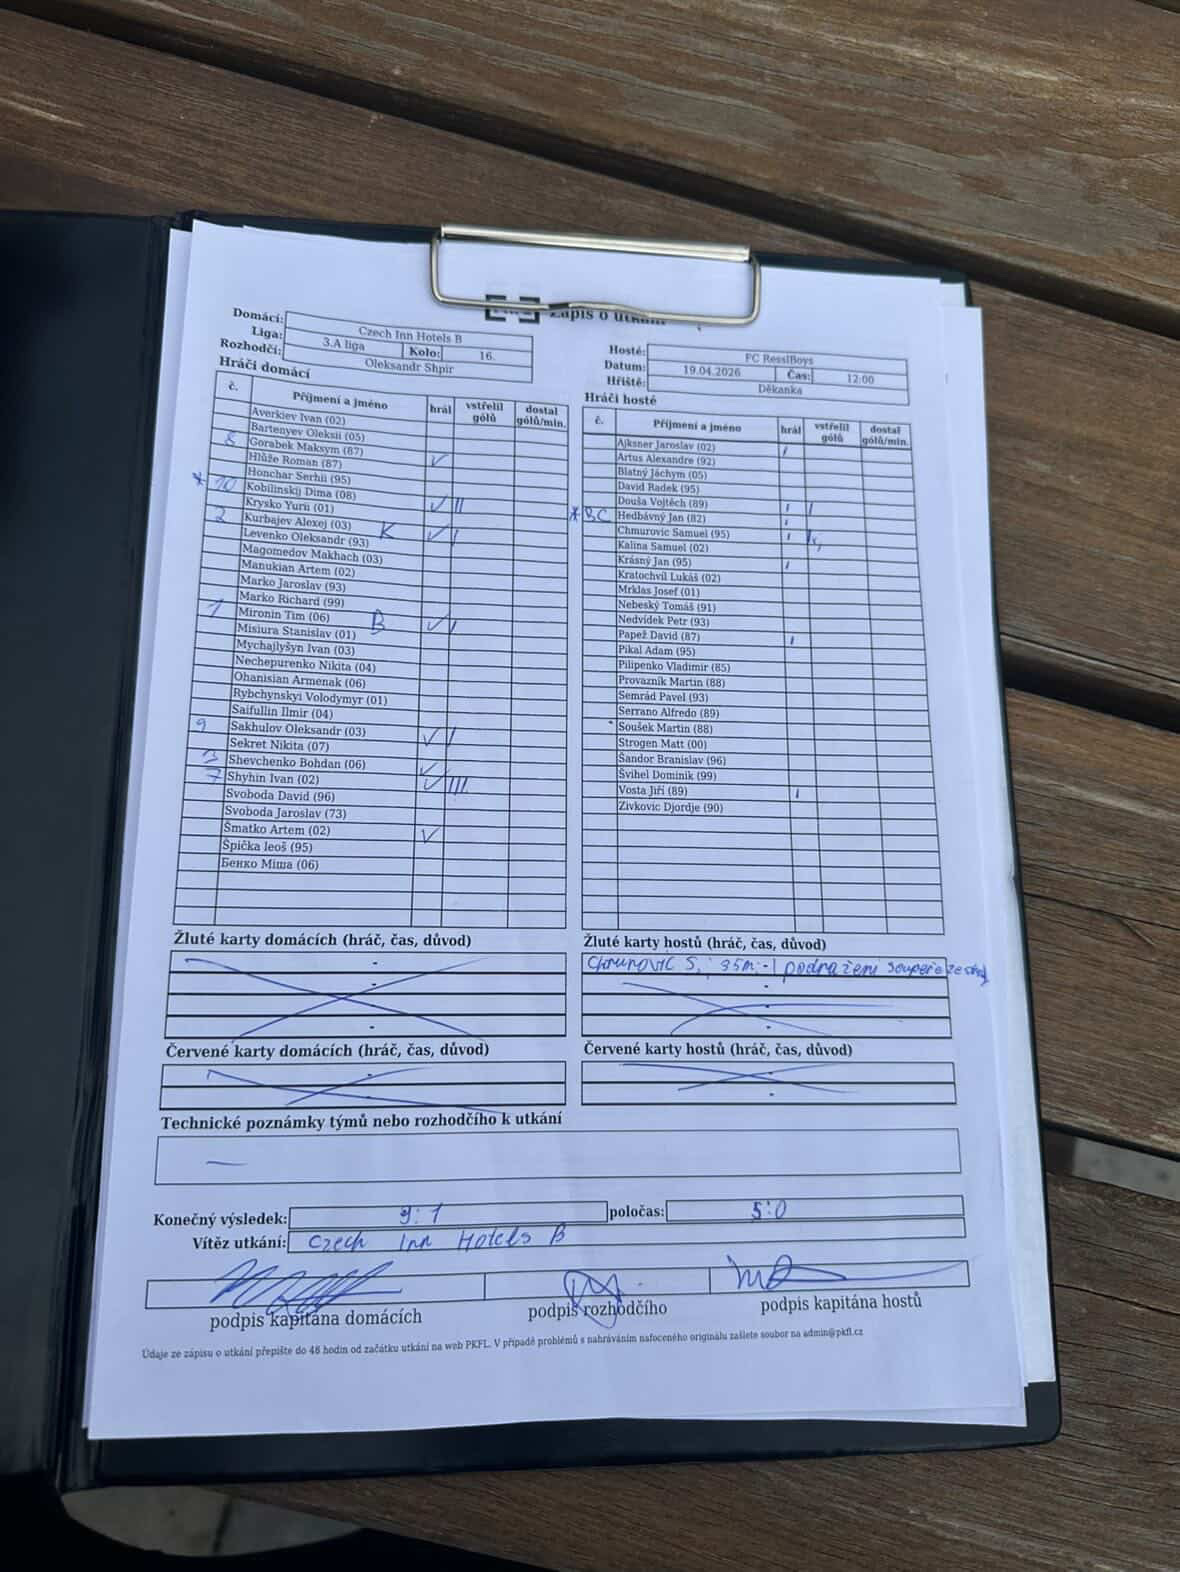 Zápis o utkání
Domácí: Czech Inn Hotels B
Liga: 3.A liga Kolo: 16.
Rozhodčí: Oleksandr Shpir
Hosté: FC ResslBoys
Datum: 19.04.2026 Čas: 12:00
Hřiště: Děkanka
Hráči domácí
č. Příjmení a jméno hrál vstřelil gólů dostal gólů/min.
Averkiev Ivan (02)
Bartenyev Oleksii (05)
8 Gorabek Maksym (87)
Hlůže Roman (87) ✓
Honchar Serhii (95)
* 10 Kobilinskij Dima (08)
Krysko Yurii (01) ✓ ||
2 Kurbajev Alexej (03)
Levenko Oleksandr (93) K ✓ |
Magomedov Makhach (03)
Manukian Artem (02)
Marko Jaroslav (93)
Marko Richard (99)
1 Mironin Tim (06)
Misiura Stanislav (01) B ✓ |
Mychajlyšyn Ivan (03)
Nechepurenko Nikita (04)
Ohanisian Armenak (06)
Rybchynskyi Volodymyr (01)
Saifullin Ilmir (04)
9 Sakhulov Oleksandr (03) ✓ |
Sekret Nikita (07)
3 Shevchenko Bohdan (06) ✓
7 Shyhin Ivan (02) ✓ |||
Svoboda David (96)
Svoboda Jaroslav (73)
Šmatko Artem (02) ✓
Špička leoš (95)
Бенко Міша (06)
Hráči hosté
č. Příjmení a jméno hrál vstřelil gólů dostal gólů/min.
Ajksner Jaroslav (02) |
Artus Alexandre (92)
Blatný Jáchym (05)
David Radek (95)
Douša Vojtěch (89) | |
* B,C Hedbávný Jan (82) |
Chmurovic Samuel (95) |
Kalina Samuel (02)
Krásný Jan (95) |
Kratochvíl Lukáš (02)
Mrklas Josef (01)
Nebeský Tomáš (91)
Nedvídek Petr (93)
Papež David (87) |
Pikal Adam (95)
Pilipenko Vladimir (85)
Provazník Martin (88)
Semrád Pavel (93)
Serrano Alfredo (89)
Soušek Martin (88)
Strogen Matt (00)
Šandor Branislav (96)
Švihel Dominik (99)
Vosta Jiří (89) |
Zivkovic Djordje (90)
Žluté karty domácích (hráč, čas, důvod)
-
-
-
Žluté karty hostů (hráč, čas, důvod)
Chmurovic S, 35m - podražení soupeře ze strany
-
-
-
Červené karty domácích (hráč, čas, důvod)
-
-
Červené karty hostů (hráč, čas, důvod)
-
-
Technické poznámky týmů nebo rozhodčího k utkání
—
Konečný výsledek: 9:1 poločas: 5:0
Vítěz utkání: Czech Inn Hotels B
podpis kapitána domácích podpis rozhodčího podpis kapitána hostů
Údaje ze zápisu o utkání přepište do 48 hodin od začátku utkání na web PKFL. V případě problémů s nahráváním nafoceného originálu zašlete soubor na admin@pkfl.cz